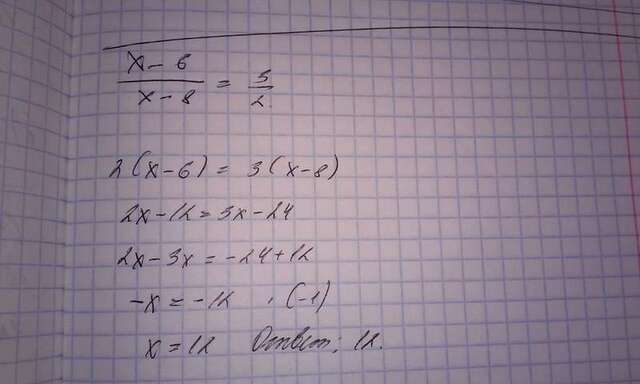 x - 6 / x - 8 = 3 / 2
2(x-6) = 3(x-8)
2x-12=3x-24
2x-3x=-24+12
-x=-12 , (-1)
x=12 Ответ: 12.